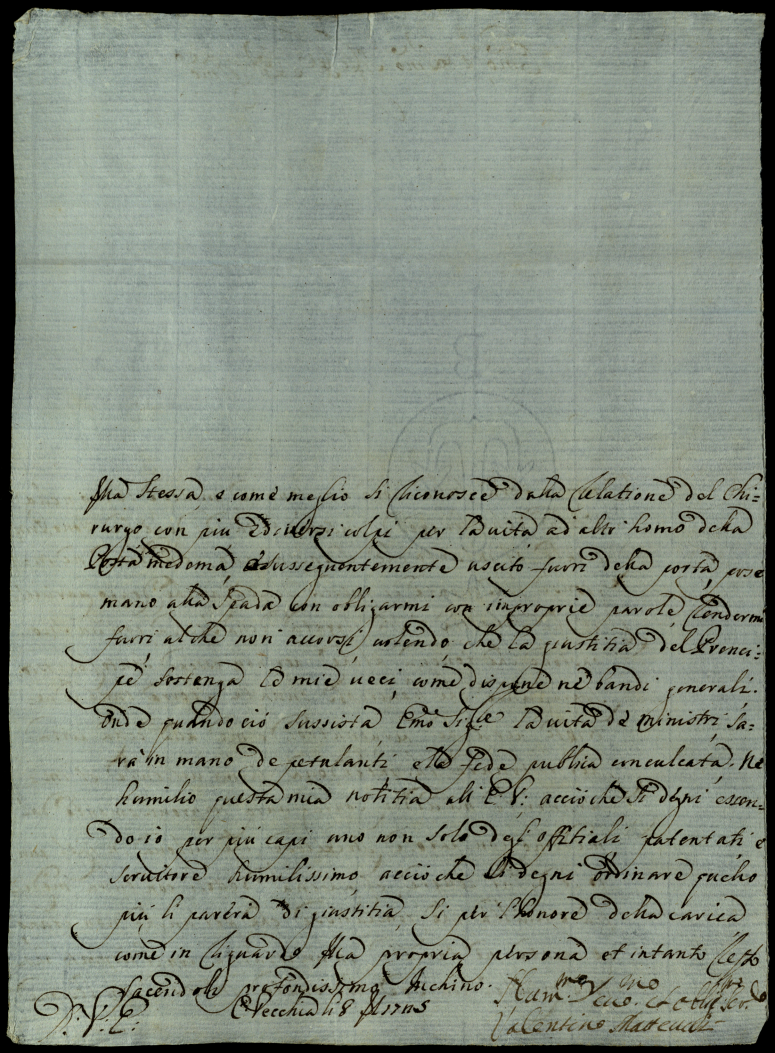 B
Alla stessa, e come meglio si riconosce dalla relatione del Chi=
rurgo con più e diversi colpi per la vita ad altr'homo della
Posta medema, e sussequentemente uscito fuori della porta pose
mano alla spada con obligarmi con improprie parole rendermi
fuori al che non accorsi volendo che la giustitia del Prenci=
pe sostenga le mie veci, come dispone ne bandi generali.
Onde quando ciò sussista Emo Sigre la vita de ministri sa=
rà in mano de petulanti e la fede publica conculcata. Ne
humilio questa mia notitia all'E. V. acciò che si degni essen=
do io per più capi uno non solo degl'offitiali patentati e
servitore humilissimo acciò che si degni ordinare quello
più li parerà di giustitia, si per l'honore della carica
come in riguardo alla propria persona et intanto resto
facendole profondissimo inchino.
D. V. E.
C Vecchia li 8
Valentino